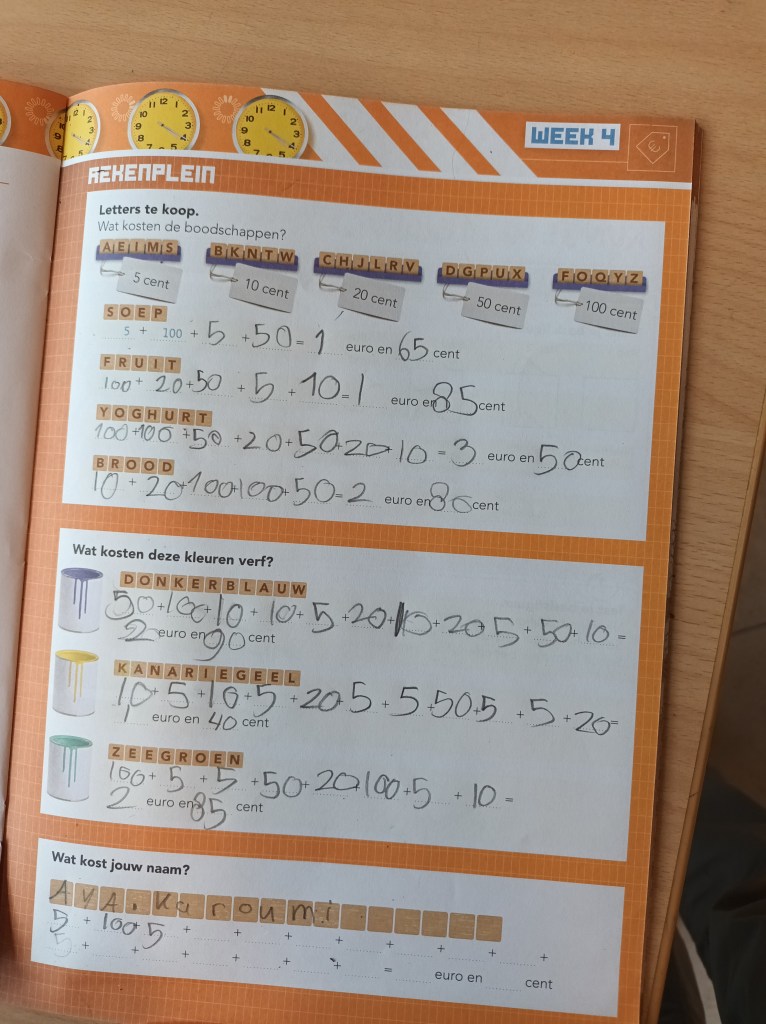 WEEK 4
REKENPLEIN
Letters te koop.
Wat kosten de boodschappen?
A E I M S B K N T W C H J L R V D G P U X F O Q Y Z
5 cent 10 cent 20 cent 50 cent 100 cent
S O E P
5 + 100 + 5 + 50 = 1 euro en 65 cent
F R U I T
100 + 20 + 50 + 5 + 10 = 1 euro en 85 cent
Y O G H U R T
100 + 100 + 50 + 20 + 50 + 20 + 10 = 3 euro en 50 cent
B R O O D
10 + 20 + 100 + 100 + 50 = 2 euro en 80 cent
Wat kosten deze kleuren verf?
D O N K E R B L A U W
50 + 100 + 10 + 10 + 5 + 20 + 10 + 20 + 5 + 50 + 10 =
2 euro en 90 cent
K A N A R I E G E E L
10 + 5 + 10 + 5 + 20 + 5 + 5 + 50 + 5 + 5 + 20 =
1 euro en 40 cent
Z E E G R O E N
100 + 5 + 5 + 50 + 20 + 100 + 5 + 10 =
2 euro en 85 cent
Wat kost jouw naam?
A y A . K a r o u m i
5 + 100 + 5 + + + + + + + +
5 + + + + + + = euro en cent